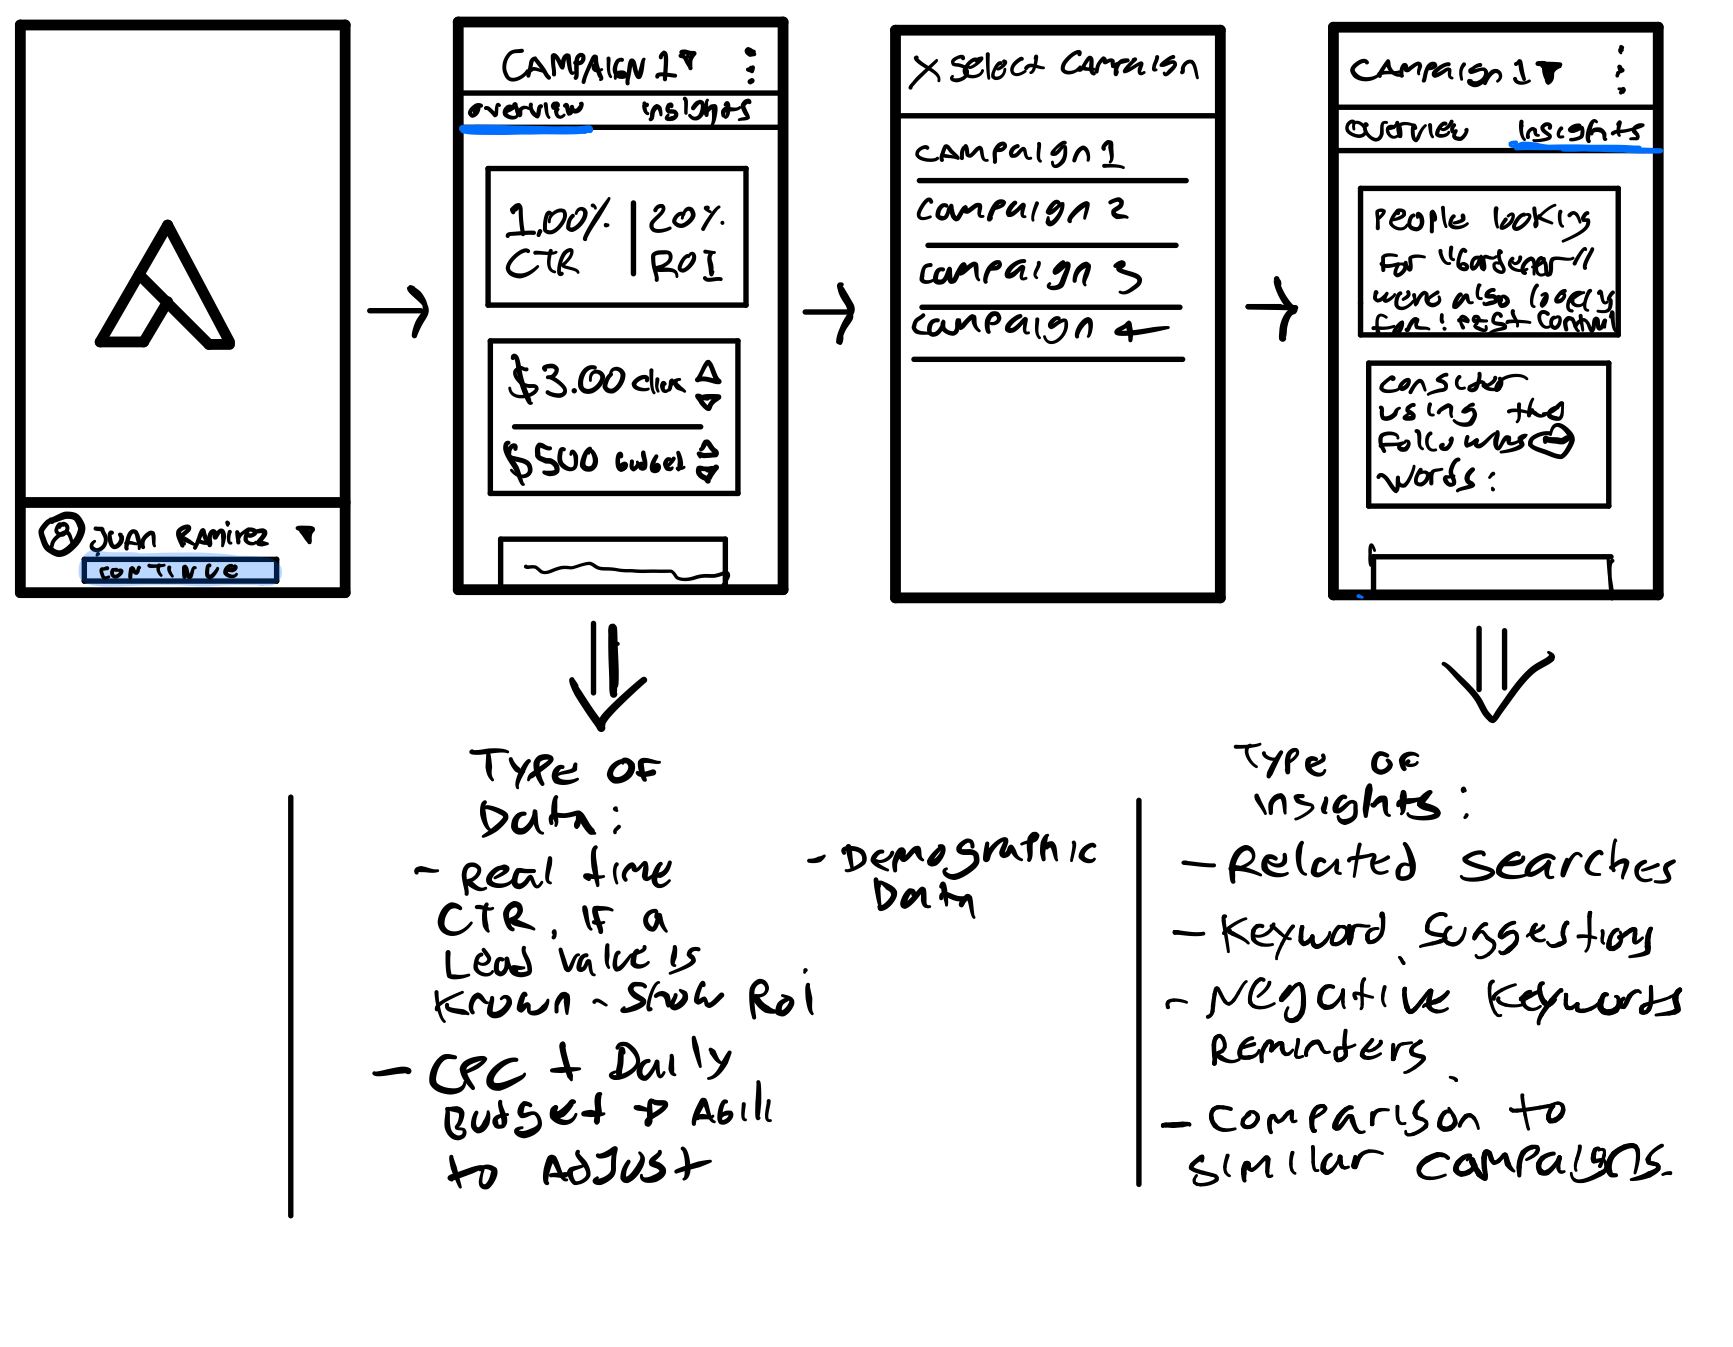 JUAN RAMIREZ
CONTINUE
CAMPAIGN 1
overview insights
1.00% | 20%
CTR ROI
$3.00 click
$500 Budget
X Select Campaign
Campaign 1
Campaign 2
Campaign 3
Campaign 4
Campaign 1
Overview Insights
People looking
For "Gardener"
were also looking
for: Pest Control
Consider
using the
Following
words:
Type of
Data:
- Real time
CTR, IF a
Lead value is
Known - Show Roi
- CPC + Daily
Budget +
to Adjust
- Demographic
Data
Type of
insights:
- Related Searches
- Keyword Suggestions
- Negative Keywords
Reminders
- Comparison to
similar campaigns.